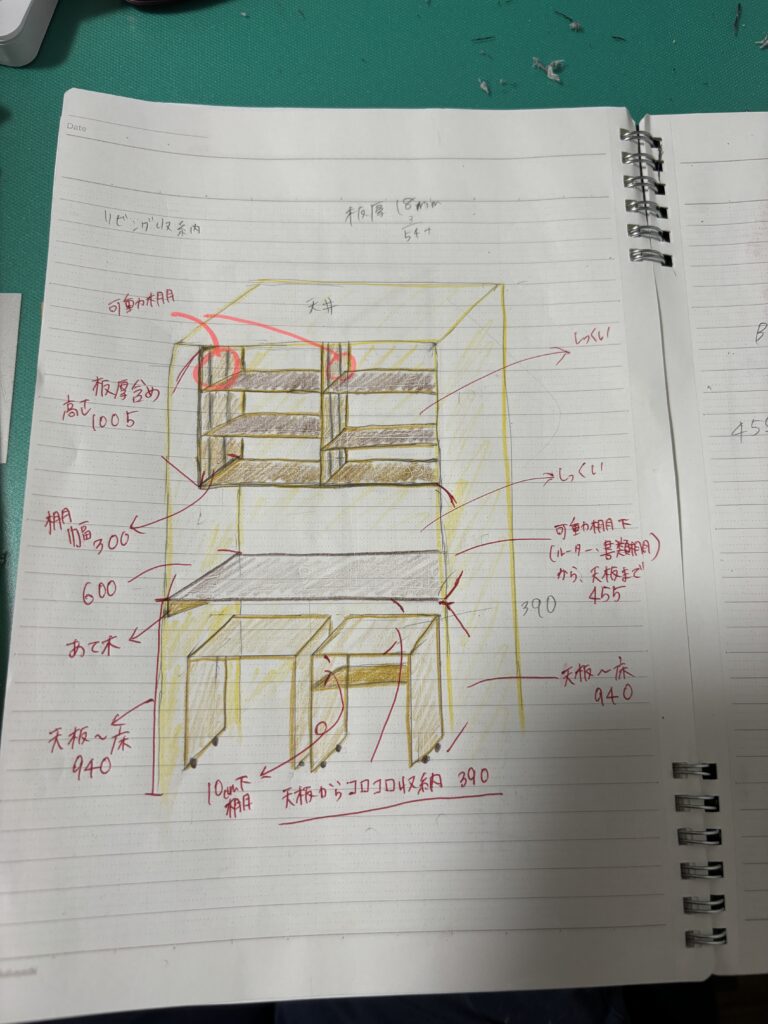 Date
リビング収納
板厚 18mm
3
54
可動棚
天井
しっくい
板厚含め
高さ
1005
しっくい
棚
幅 300
可動棚下
(ルーター・書類棚)
から、天板まで
455
600
390
あて木
天板〜床
940
天板〜床
940
10cm下
棚
天板からコロコロ収納 390
B
455